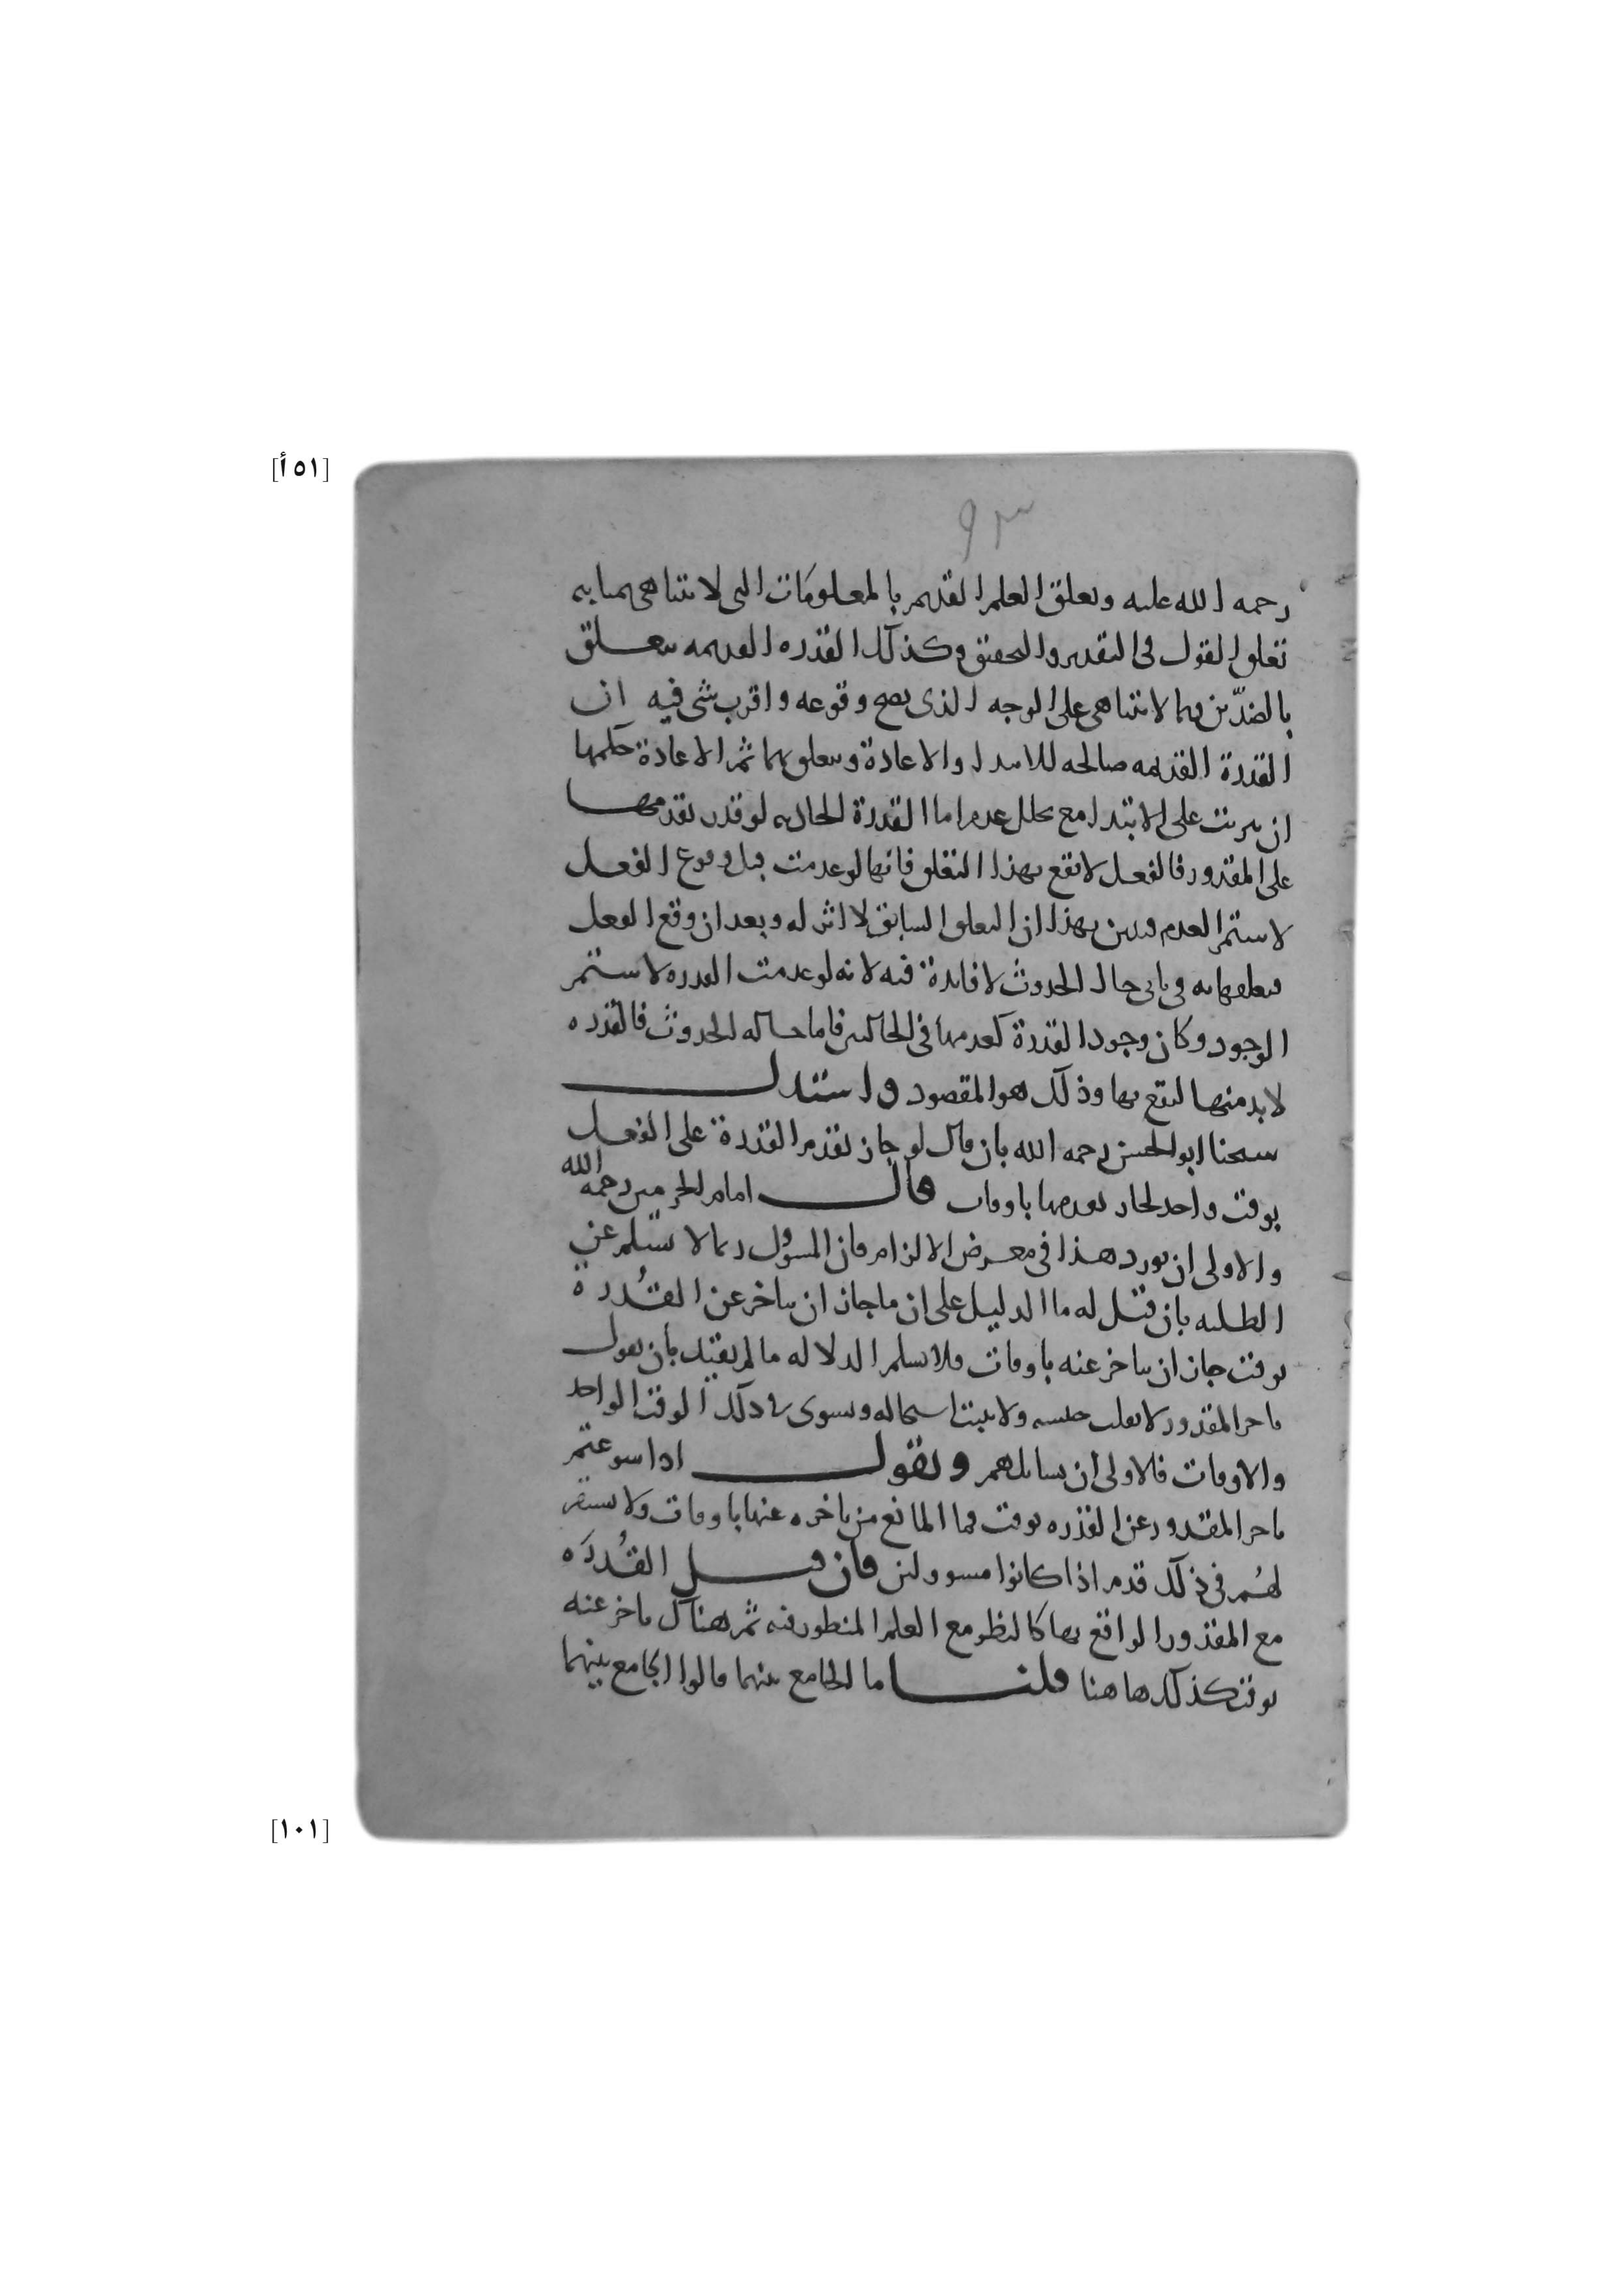 [٥١أ]
٩٣
رحمه الله عليه وتعلق العلم القديم بالمعلومات التي لا تتناهى بمثابه
تعلق القول في التقدير والتحقيق وكذلك القدره القديمه تتعلق
بالضدّين بما لا يتناهى على الوجه الذي يصح وقوعه واقرب شي فيه ان
القدرة القديمه صالحه للابتدا والاعادة وتتعلق بهما ثم الاعادة حكمها
ان يترتب على الابتدا مع تخلل عدم اما القدرة الحادثه لو قدر تقدمها
على المقدور فالفعل لا يقع بهذا التعلق فانها لو عدمت قبل وقوع الفعل
لاستمر العدم وتبين بهذا ان التعلق السابق لا اثر له وبعد ان وقع الفعل
فتعلقها به في ثاني حال الحدوث لا فايدة فيه لانه لو عدمت القدره لاستمر
الوجود وكان وجود القدرة كعدمها في الحالتين فاما حاله الحدوث فالقدره
لا بد منها ليقع بها وذلك هو المقصود واستدل
شيخنا ابو الحسن رحمه الله بان قال لو جاز تقدم القدرة على الفعل
بوقت واحد لجاز تقدمها باوقات قال امام الحرمين رحمه الله
والاولى ان يورد هذا في معرض الالزام فان المسؤول ربما لا يسلم عن
الطلبه بان قيل له ما الدليل على ان ما جاز ان يتاخر عن القُدرة
بوقت جاز ان يتاخر عنه باوقات فلا تسلم الدلاله ما لم يقيد بان يقول
تاخر المقدور لا يقلب جنسه ولا يثبت استحاله ويستوي في ذلك الوقت الواحد
والاوقات فالاولى ان نسايلهم ونقول اذا سوغتم
تاخر المقدور عن القدره بوقت فما المانع من تاخره عنها باوقات ولا يستقر
لهُم في ذلك قدم اذا كانوا مسوولين فان قيل القُدرَه
مع المقدور الواقع بها كالنظر مع العلم المنظور فيه ثم هناك تاخر عنه
بوقت كذلك هاهنا قلنا ما الجامع بينهما قالوا الجامع بينهما
[١٠١]